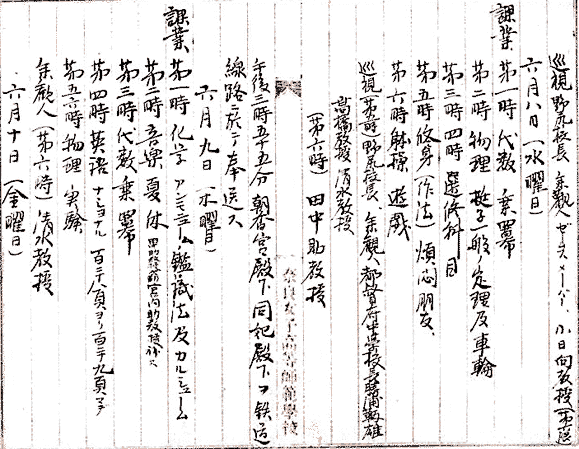 巡視 野尻校長 参観人
六月八日(水曜日)
課業 第一時 代数 乗冪
第二時 物理 梃子一般ノ定理及車輪
第三時 四時 選修科目
第五時 修身(作法) 煩悶 朋友
第六時 体操 遊戯
巡視(第一時)野尻校長、参観人 都督府中学校長 勝浦鞆雄
高橋教授 清水教授
(第六時) 田中助教授
午後三時五十五分 朝香宮殿下 同妃殿下ヲ鉄道
線路ニ於テ奉送ス
六月九日(木曜日)
課業 第一時 化学 アルミニューム鑑識法及カルシューム
第二時 音楽 夏休
第三時 代数 乗冪
第四時 英語 ナショナル 百二十八頁ヨリ百二十九頁マデ
第五六時 物理 実験
参観人(第六時)清水教授
六月十日(金曜日)
奈良女子高等師範学校